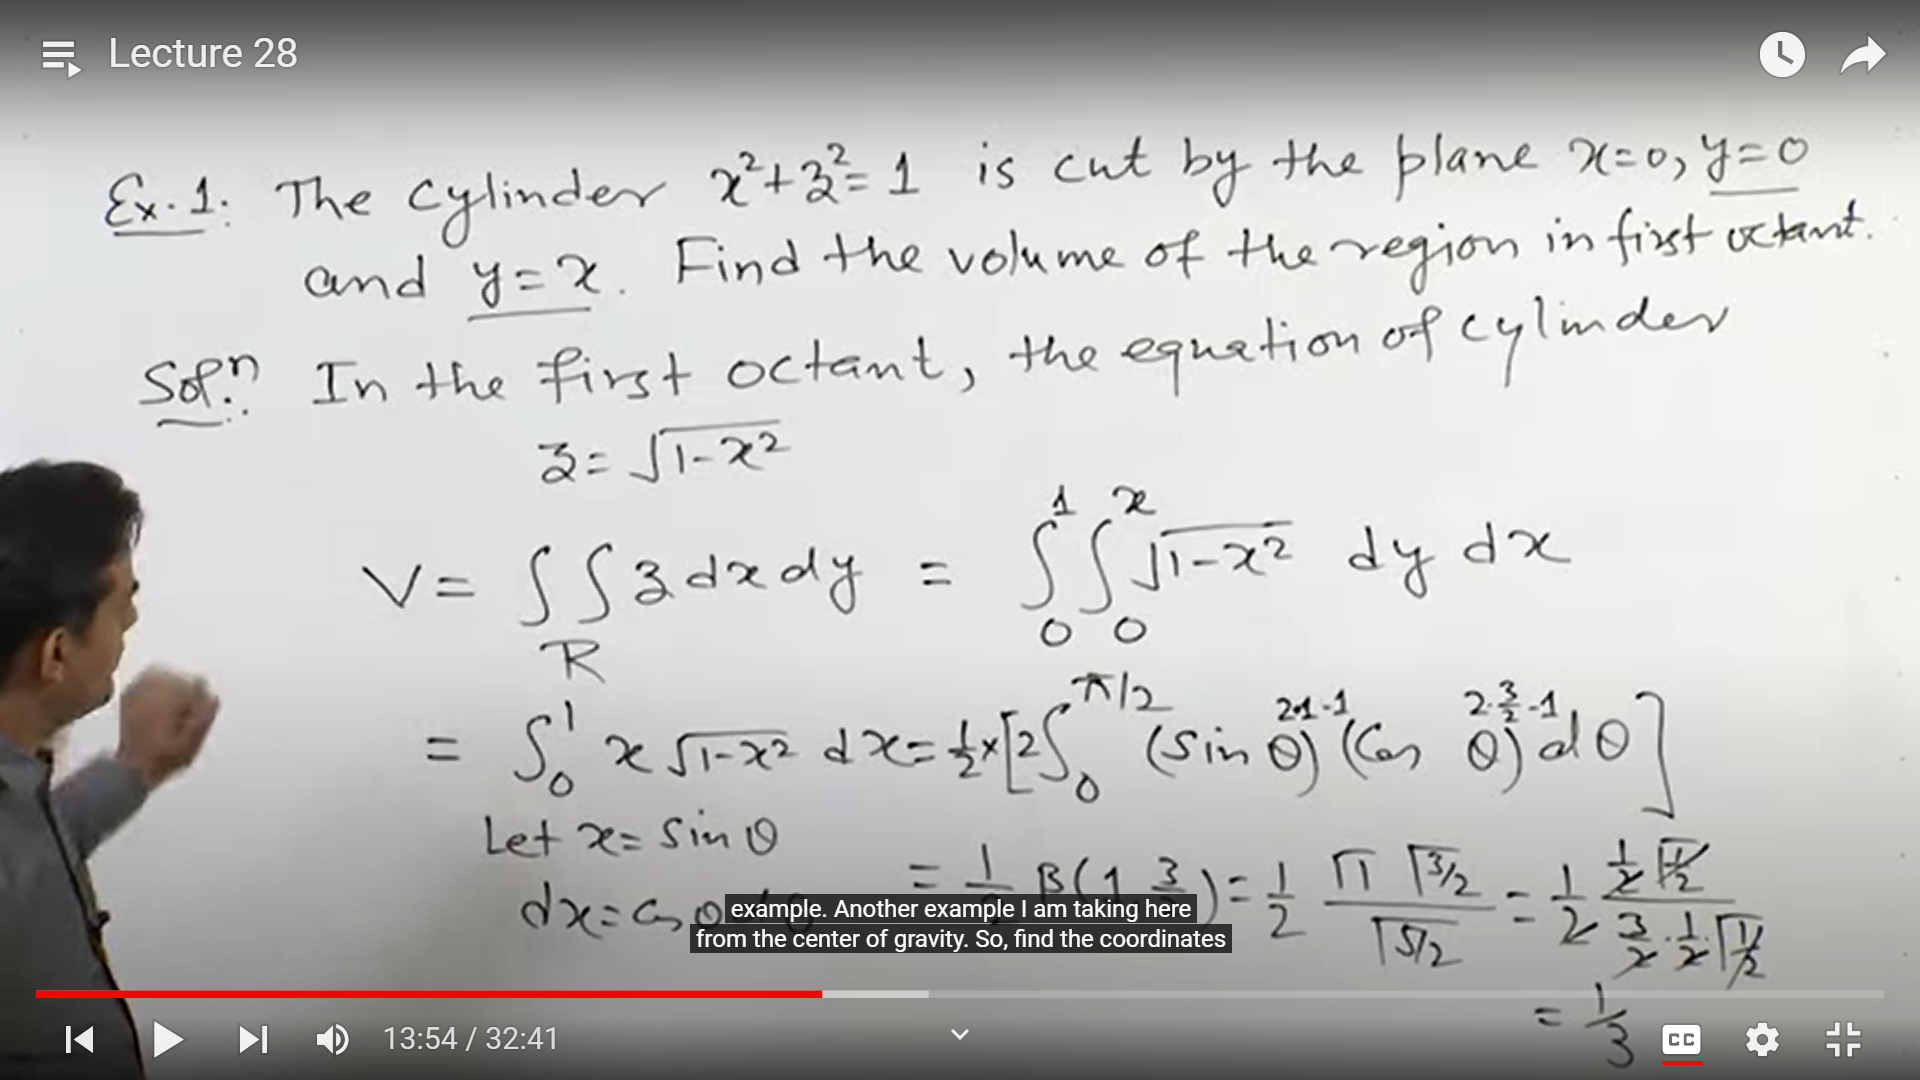 Lecture 28
Ex.1. The cylinder x²+z²=1 is cut by the plane x=0, y=0
and y=x. Find the volume of the region in first octant.
Solⁿ. In the first octant, the equation of cylinder
z=√1-x²
V= ∫∫_R z dx dy = ∫₀¹ ∫₀ˣ √1-x² dy dx
= ∫₀¹ x √1-x² dx = 1/2 × [2∫₀^π/2 (Sin θ)^2·1-1 (Cos θ)^2·3/2-1 dθ]
Let x= Sin θ
= 1/2 β(1, 3/2) = 1/2 Γ1 Γ3/2 / Γ5/2 = 1/2 1/2 Γ1/2 / 3/2 · 1/2 · Γ1/2
dx= Cos θ
example. Another example I am taking here
from the center of gravity. So, find the coordinates
= 1/3
13:54 / 32:41
CC